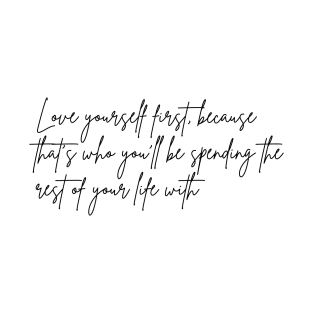 Love yourself first, because
that's who you'll be spending the
rest of your life with